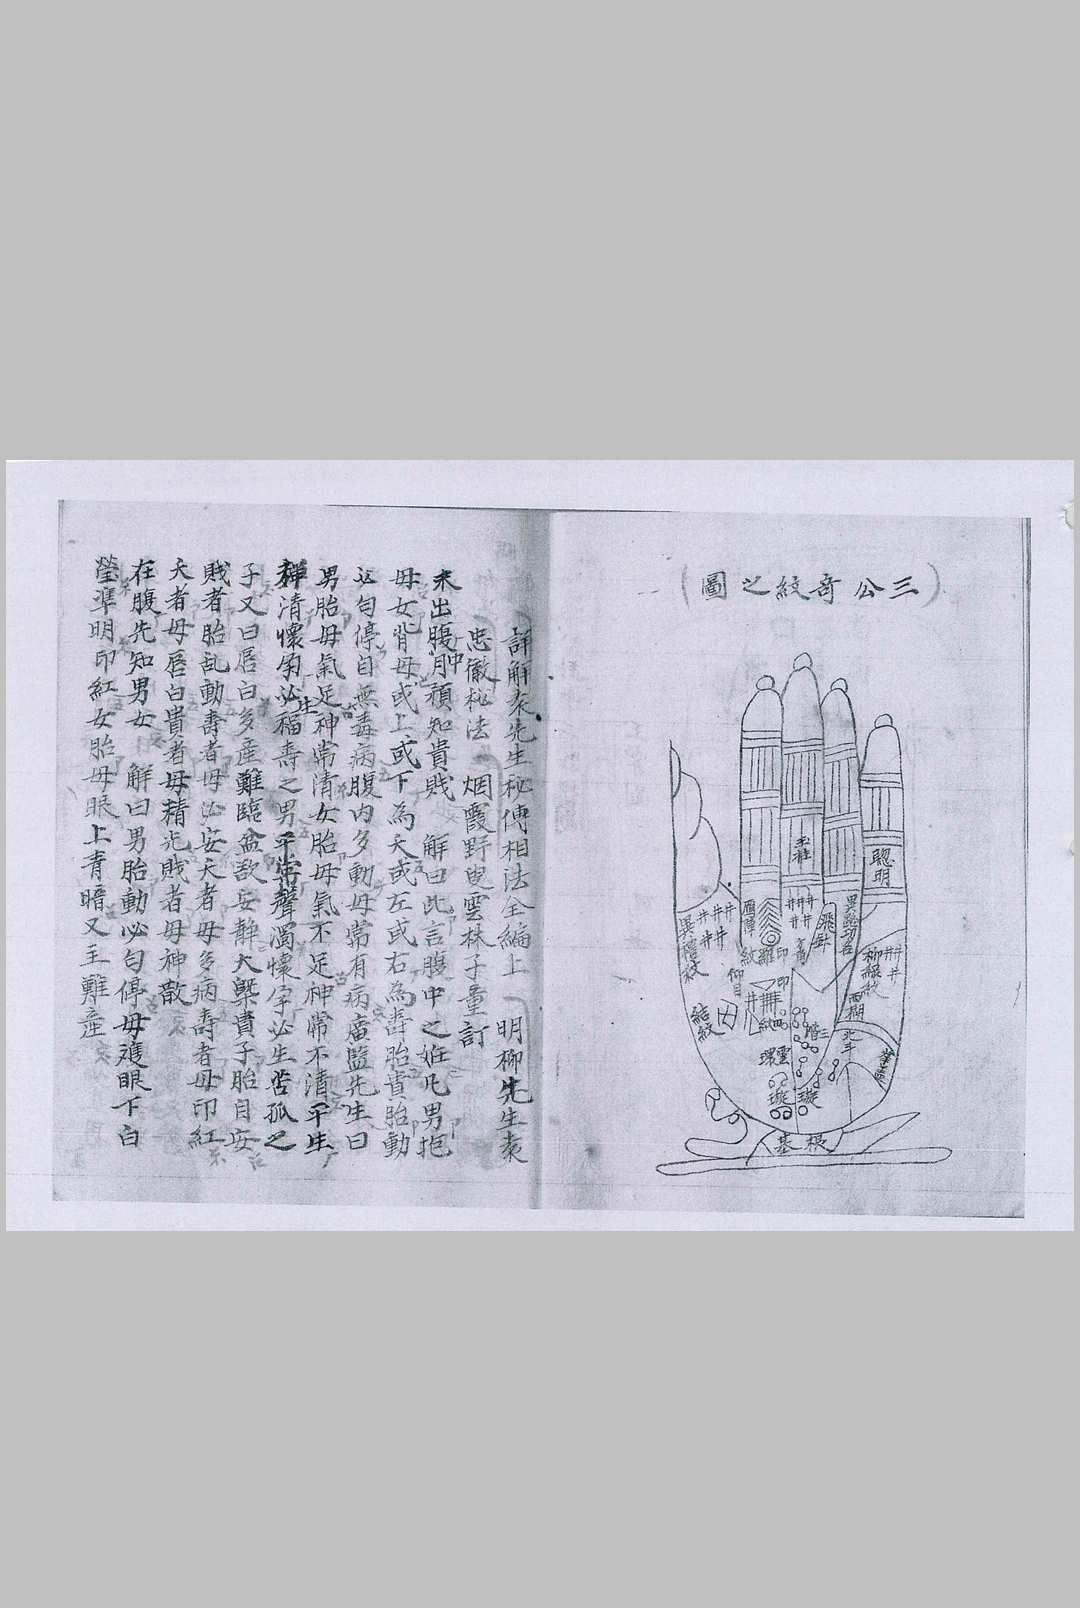 三公奇紋之圖
聰明
玉柱
異路功名
飛針
雁陣
紋
羅
印
仰目
異禮紋
柳絲紋
結紋
印
西闕
北斗
華蓋
雲環
璇璇
根基
詳解秂先生秘傳相法全編上　明柳先生袁
忠徹秘法　烟霞野叟雲林子量訂
未出腹中月預知貴賎　解曰此言腹中之姙凡男抱
母女背母或上或下為夭或左或右為壽胎貴胎動
必匀停自無毒病腹内多動母常有病廣監先生曰
男胎母氣足神常清女胎母氣不足神常不清平生
神清懷孕必生福壽之男平常聲濁懷孕必生苦孤之
子又曰唇白多産難臨盆敨安靜大槩貴子胎自安
賎者胎乱動壽者母必安夭者母多病壽者母印紅
夭者母唇白貴者母精光賎者母神散
在腹先知男女　解曰男胎動必匀停母䕶眼下白
瑩準明印紅女胎母眼上青暗又主難産